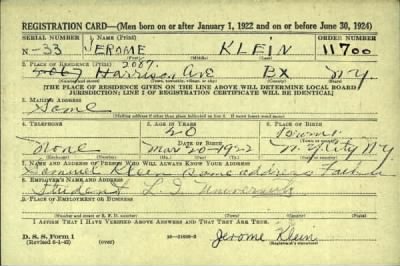 REGISTRATION CARD—(Men born on or after January 1, 1922 and on or before June 30, 1924)
SERIAL NUMBER 1. NAME (Print) ORDER NUMBER
N-33 JEROME KLEIN 11700
(First) (Middle) (Last)
2. PLACE OF RESIDENCE (Print) 2087.
Harrison Ave BX N.Y.
(Number and street) (Town, township, village, or city) (County) (State)
[THE PLACE OF RESIDENCE GIVEN ON THE LINE ABOVE WILL DETERMINE LOCAL BOARD
JURISDICTION; LINE 2 OF REGISTRATION CERTIFICATE WILL BE IDENTICAL]
3. MAILING ADDRESS
Same
(Mailing address if other than place indicated on line 2. If same insert word same)
4. TELEPHONE 5. AGE IN YEARS 6. PLACE OF BIRTH
20
DATE OF BIRTH (Town or county)
None Mar 20-1922 N.Y. City N.Y.
(Exchange) (Number) (Mo.) (Day) (Yr.) (State or country)
7. NAME AND ADDRESS OF PERSON WHO WILL ALWAYS KNOW YOUR ADDRESS
Samuel Klein same address Father
8. EMPLOYER'S NAME AND ADDRESS
Student L. I. University
9. PLACE OF EMPLOYMENT OR BUSINESS
(Number and street or R. F. D. number) (Town) (County) (State)
I AFFIRM THAT I HAVE VERIFIED ABOVE ANSWERS AND THAT THEY ARE TRUE.
D. S. S. Form 1
(Revised 6-1-42) (over)
Jerome Klein
(Registrant's signature)